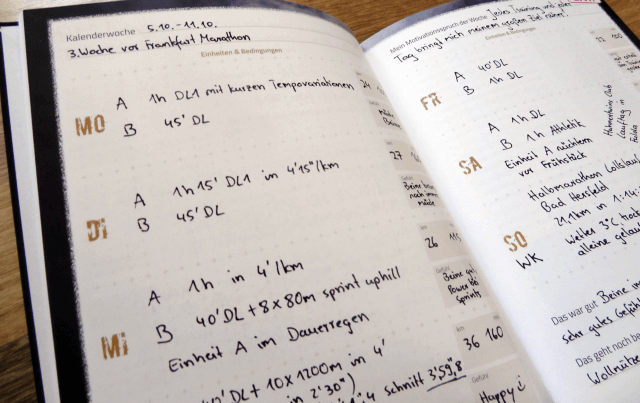 Kalenderwoche 5.10.-11.10.
3.Woche vor Frankfurt Marathon
Einheiten & Bedingungen
MO
A 1h DL1 mit kurzen Tempovariationen
B 45' DL
DI
A 1h15' DL1 in 4'15"/km
B 45' DL
27
Beine
noch
müde
Mi
A 1h in 4'/km
B 40' DL + 8x80m sprint uphill
Einheit A im Dauerregen
26
Beine
Power
sprints
0' DL + 10 x 1200m in 4'
in 2'30")
schnitt 3'59",8
km
36 160
Gefühl
Happy
Mein Motivationsspruch der Woche Jedes Training und jeder
Tag bringt mich meinem großen Ziel näher!
Einheiten & Bedingungen
FR
A 40' DL
B 1h DL
SA
A 1h DL
B 1h Athletik
Einheit A nüchtern
vor Frühstück
Lauftag in
Fulda
SO
WK
Halbmarathon
Bad Hersfeld
21.1km in 1:14:
Wetter 3°C
alleine
Das war gut Beine
sehr gutes
Das geht noch